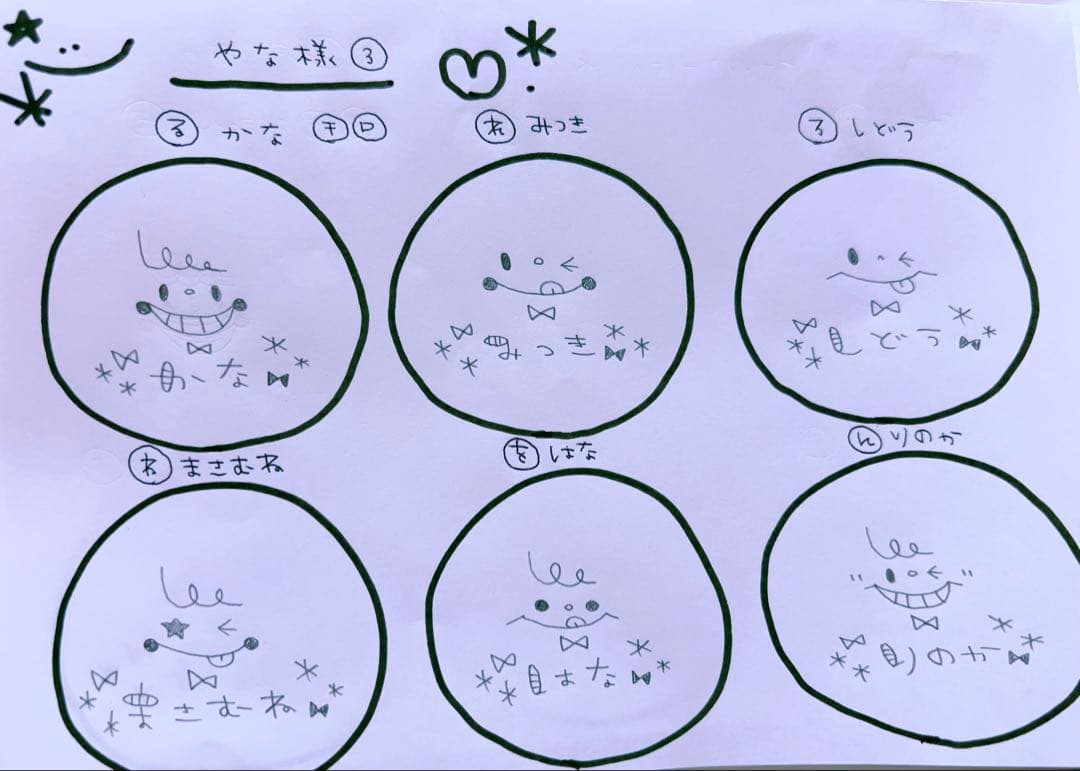 やな様③
る かな キロ
れ みつき
ろ しどう
かな
みつき
しどう
わ まさむね
を はな
ん りのか
まさむね
はな
りのか